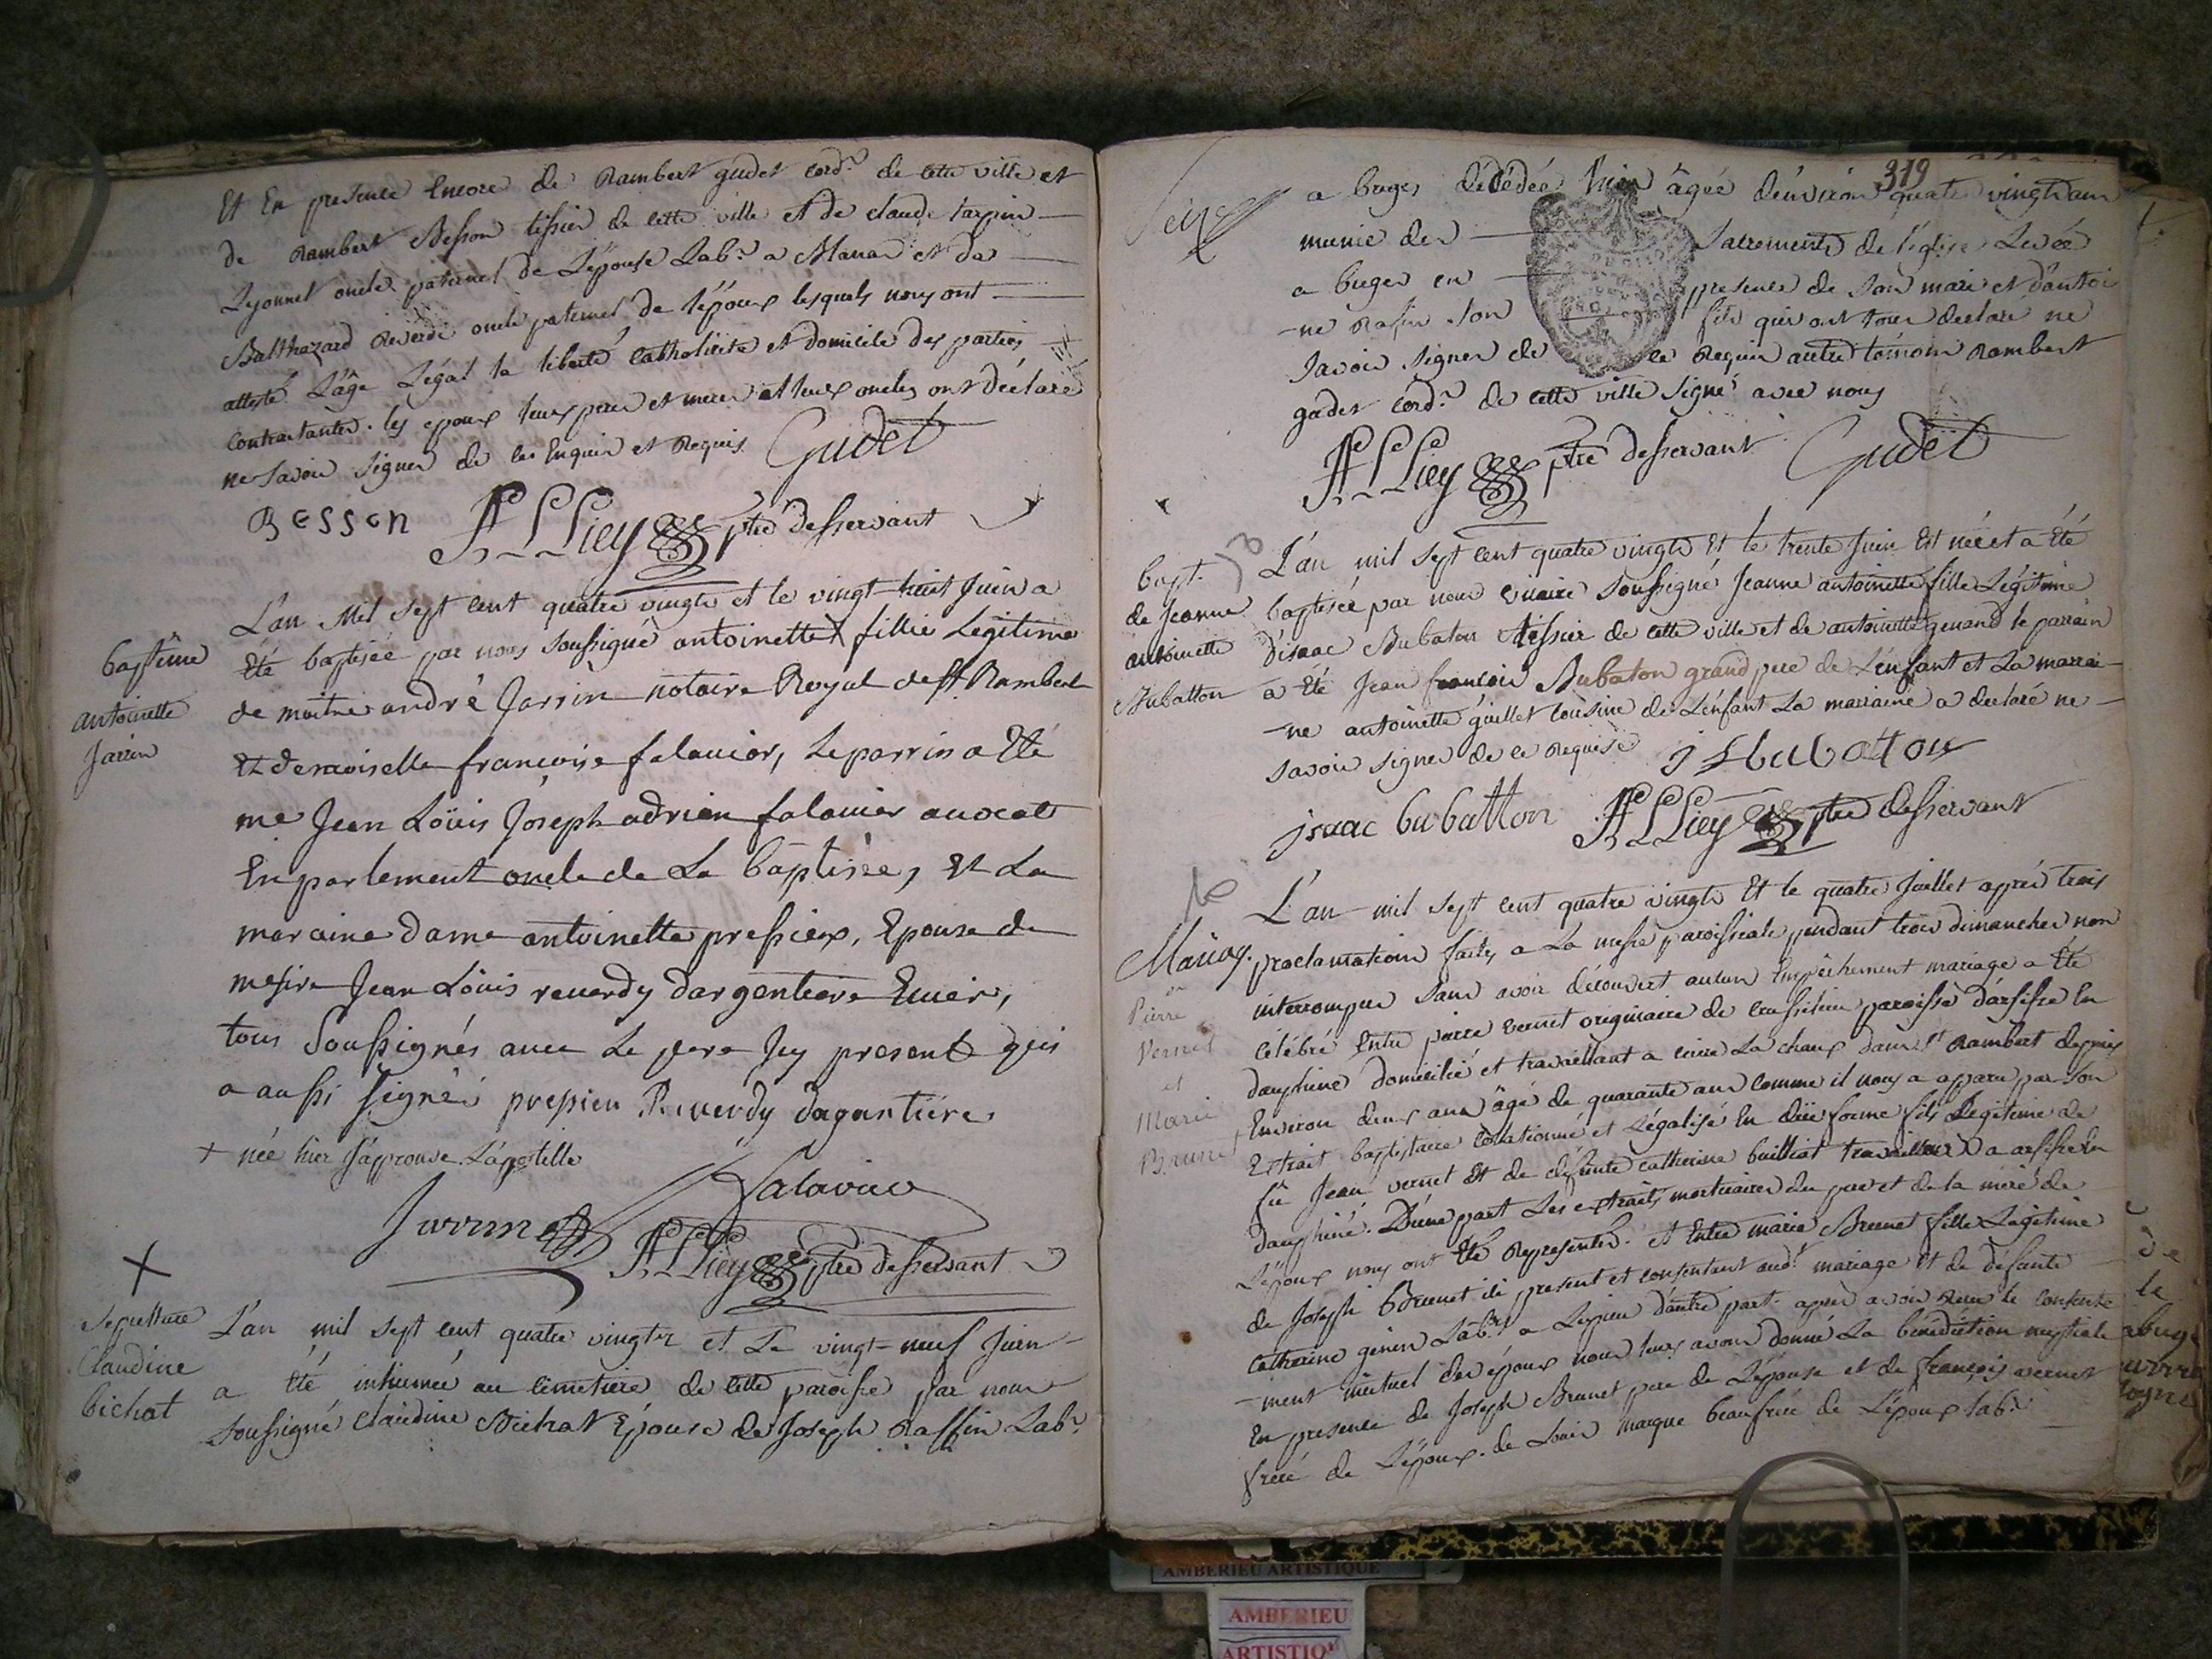 Et En presence Encore de Rambert gudet cord.r de cette ville et
de Rambert Besson tissier de cette ville et de claude tarpin
Lyonnet oncle paternel de L'épouse Lab.r a et de
Balthazard Reverdi oncle paternel de l'époux lesquels nous ont
attesté L'âge Légal la liberté catholicité et domicile des parties
contractantes. les epoux leurs pere et mere et leurs oncles ont déclaré
ne savoir signer de ce Enquis et Requis. Gudet
Besson ptre desservant
baptême
antoinette
Jarrin
L'an Mil sept cent quatre vingts et le vingt-huit Juin a
Eté baptisée par nous soussigné antoinette + fille Legitime
de maitre andré Jarrin notaire Royal de st Rambert
Et demoiselle françoise falavier, Le parrin a Eté
me Jean Loüis Joseph adrien falavier avocat
En parlement oncle de La baptisée, Et La
maraine dame antoinette pressieux, Epouse de
messire Jean Loüis reverdy dargentiere Ecuier,
tous Soussignés avec Le pere Icy present qui
a aussi signé. pressieu Reverdy dagentiére
+ née hier J'approuve L'apostille
Jarrin Falavier
ptre desservant
sepulture
Claudine
bichat
L'an mil sept cent quatre vingts et Le vingt-neuf Juin
a été inhumée au cimetiere de cette paroisse par nous
soussigné Claudine Bichat Épouse de Joseph Raffin Lab.r
319
Seize
a buges décédée hier âgée d'environ quatre vingts ans
munie des Sacrements de l'église Levée
a buges en presence de son mari et d'antoi
-ne Rafin son fils qui ont tous declaré ne
savoir signer de ce Requis autre témoin Rambert
gudet cord.r de cette ville signé avec nous
ptre desservant Gudet
bapt.
de Jeanne
antoinette
Bubatton
L'an mil sept cent quatre vingts Et le trente Juin Est née et a Eté
baptisée par nous vicaire soussigné Jeanne antoinette fille Légitime
d'isaac Bubaton tissier de cette ville et de antoinette genand le parrain
a Eté Jean françois Bubaton grand pere de L'enfant et La marrai
-ne antoinette guillet cousine de L'enfant La marraine a declaré ne
savoir signer de ce Requise
isaac bubatton ptre desservant
Mariag.
de
Pierre
Vernet
et
Marie
Brunet
L'an mil sept cent quatre vingts Et le quatre Juillet après trois
proclamations faites a La messe paroissiale pendant trois dimanches non
interrompus sans avoir découvert aucun Empêchement mariage a Eté
célébré Entre pierre vernet originaire de paroisse d'arsisse En
dauphiné domicilié et travaillant a cuire La chaux dans st Rambert depuis
Environ deux ans âgé de quarante ans comme il nous a apparu par son
Extrait baptistaire collationné et Légalisé En düe forme fils Legitime de
fû Jean vernet Et de défunte catherine builliat travailleurs a arsisse En
dauphiné. D'une part Les extraits mortuaires du pere et de la mere de
L'époux nous ont Eté Representés. Et Entre marie Brunet fille Legitime
de Joseph Brunet ici present et consentant aud.t mariage Et de défunte
catherine genin Lab.rs a d'autre part. après avoir reçu le consente
-ment mutuel des époux nous leurs avons donné La bénédiction nuptiale
En presence de Joseph Brunet pere de L'épouse et de françois vernet
frere de L'époux. de Louis marque beaufrere de L'époux lab.r
AMBERIEU ARTISTIQUE
AMBERIEU